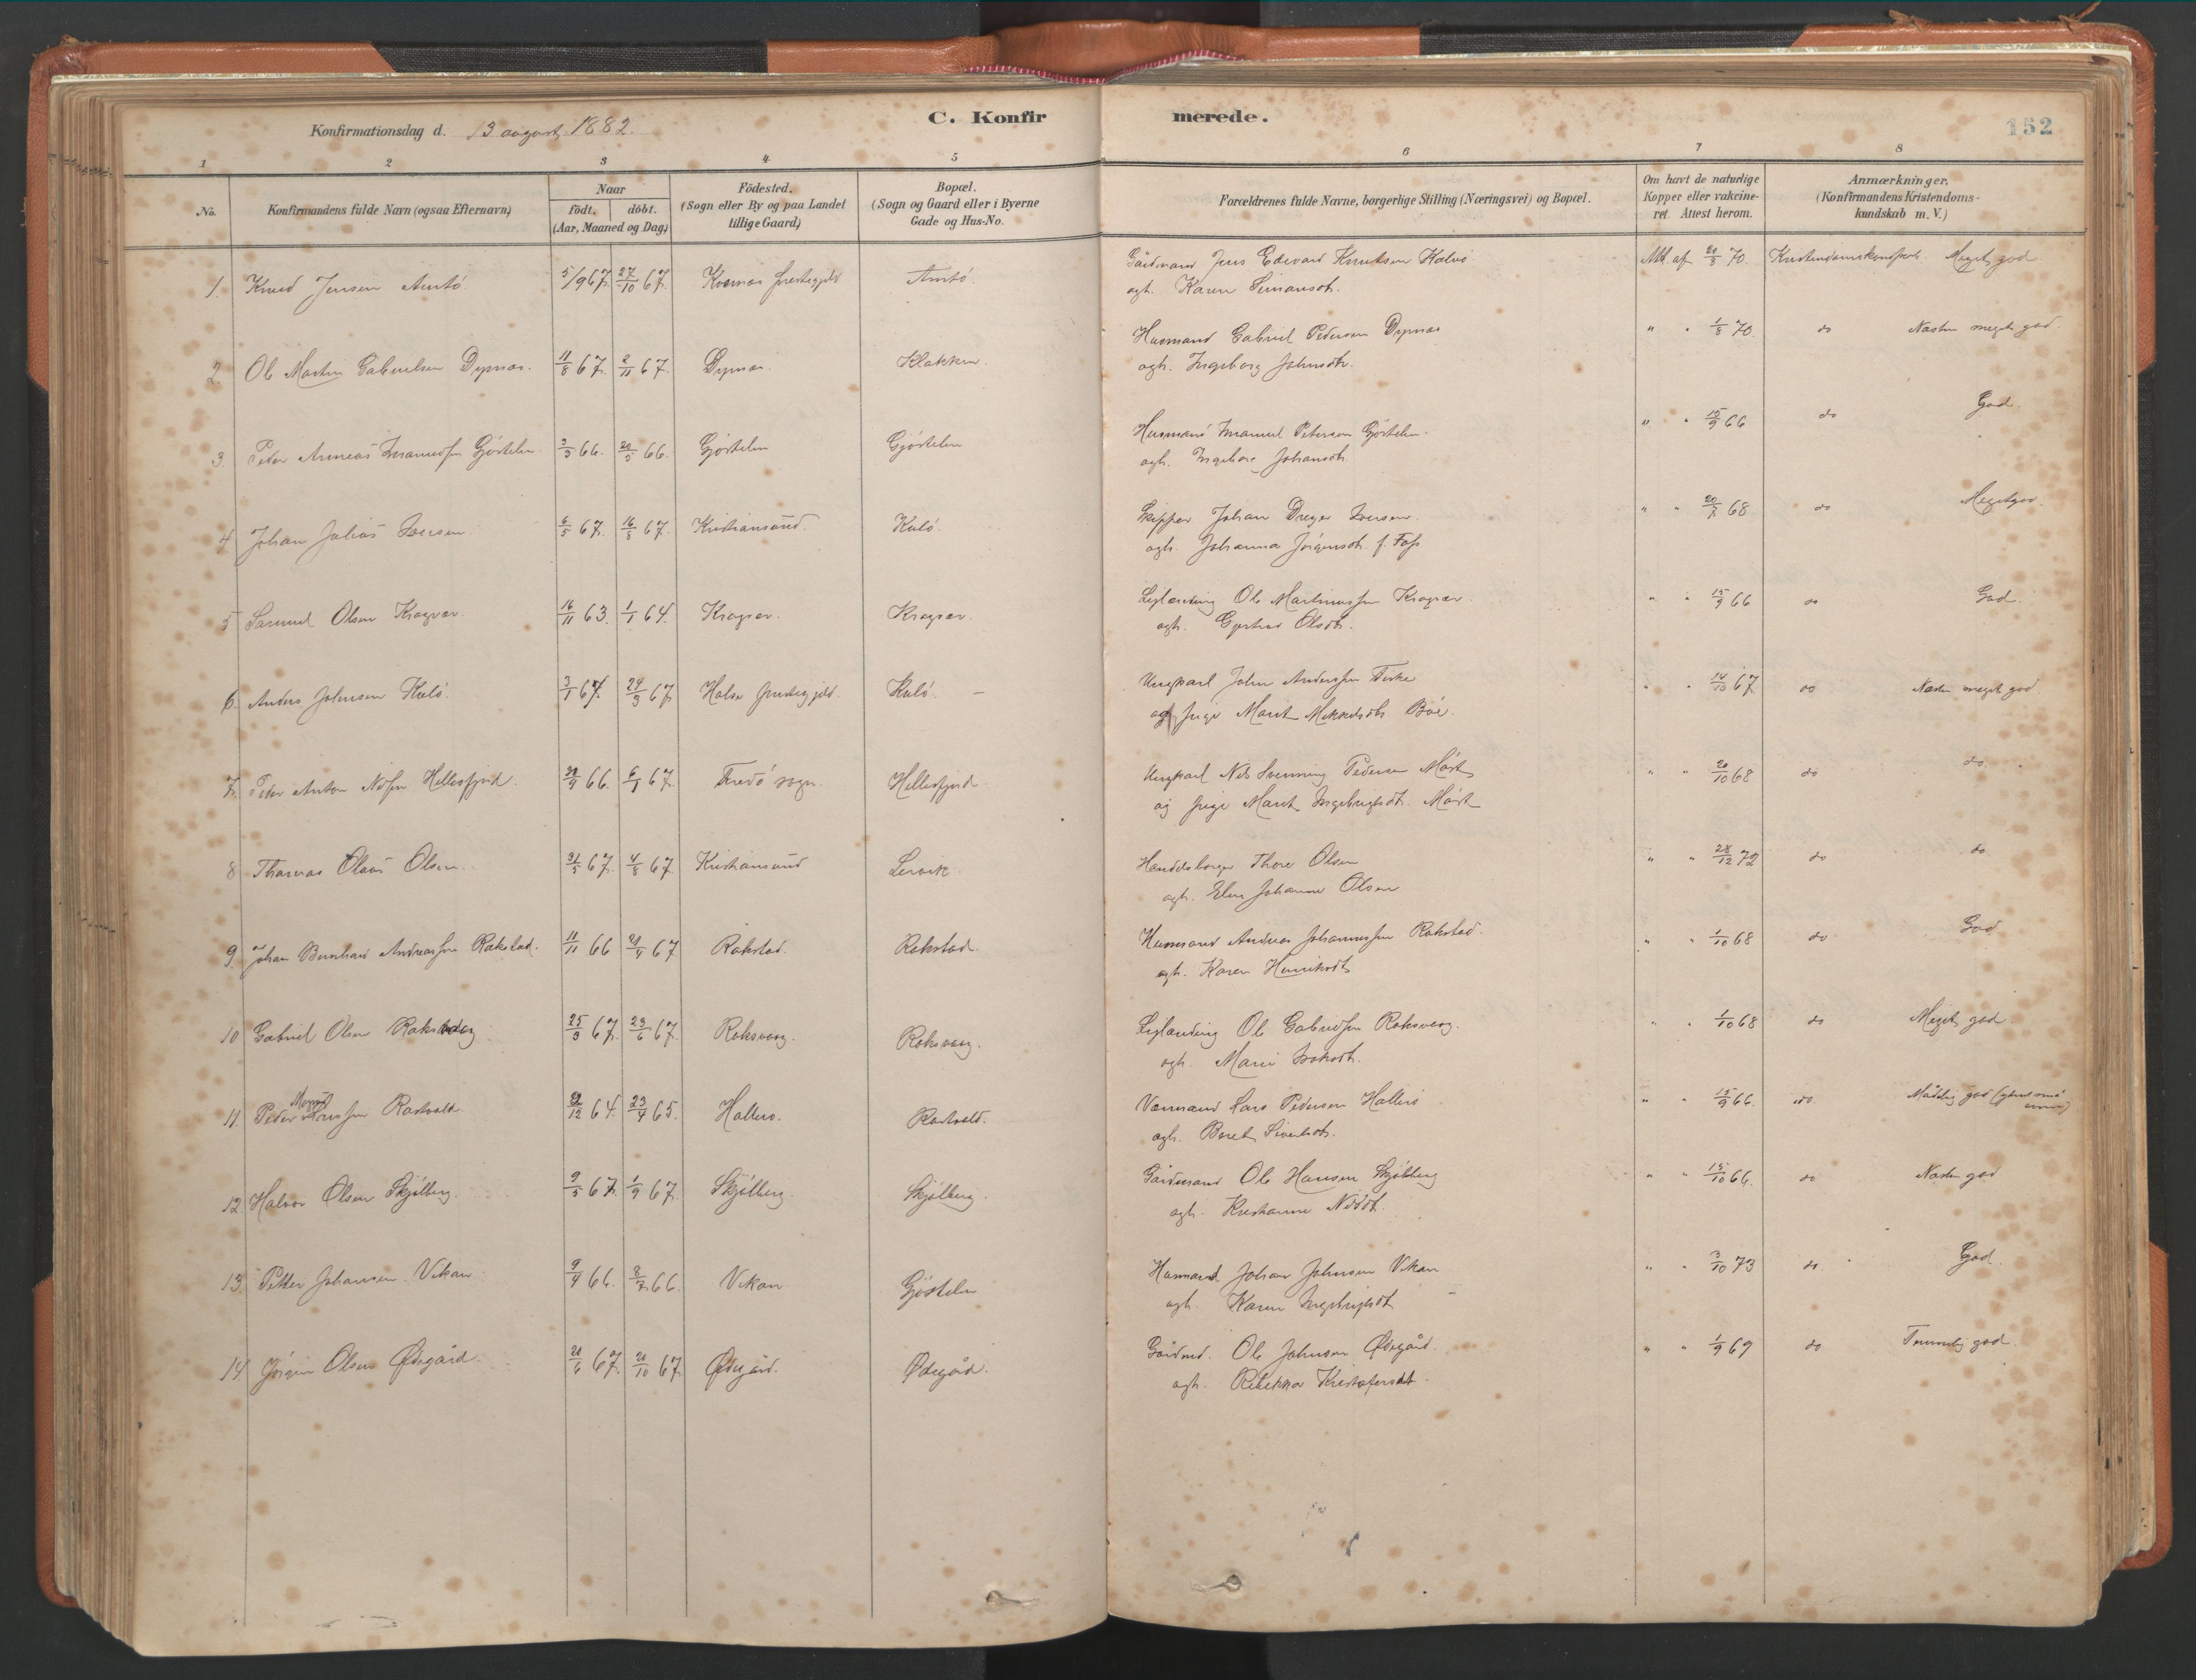 Konfirmationsdag d. 13 august 1882.
C. Konfirmerede.
152
1 2 3 4 5 6 7 8
No.
Konfirmandens fulde Navn (ogsaa Efternavn)
Naar
födt. döbt.
(Aar, Maaned og Dag)
Födested.
(Sogn eller By og paa Landet
tillige Gaard)
Bopæl.
(Sogn og Gaard eller i Byerne
Gade og Hus-No.
Forældrenes fulde Navne, borgerlige Stilling (Næringsvei) og Bopæl.
Om havt de naturlige
Kopper eller vakcine-
ret. Attest herom.
Anmærkninger.
(Konfirmandens Kristendoms-
kundskab m. V.)
1. Knud Jensen Arntö 5/9 67. 27/10 67. Kvernes prestegjeld Arntö
Gårdmand Jens Edevard Knutsen Halsö
ogh. Karen Simansdt.
Att. af 20/8 70. Kristendomskundskab. Meget god
2 Ole Martin Gabrielsen Dyrnas. 11/8 67. 2/11 67. Dyrnas. Klakken.
Husmand Gabriel Pedersen Dyrnas
ogh. Ingeborg Johnsdt.
" " 1/8 70. do Næsten meget god.
3. Peder Arneas Imanuelsen Gjöstelen 3/3 66. 20/5 66. Gjöstelen Gjöstelen
Husmand Imanuel Petersen Gjöstelen.
ogh. Ingebor Johansdt.
" " 15/9 66 do God.
4 Johan Julius Iversen 6/5 67. 16/8 67. Kristiansund. Kulö.
Skipper Johan Dreyer Iversen.
ogh. Johanna Jörgensdt. f. Foss
" " 20/7 68 do Meget god.
5 Samuel Olsen Kragvær. 16/11 63. 1/1 64. Kragvær. Kragvær.
Leylænding Ole Martinussen Kragvær.
ogh. Gjertrud Olsdt.
" " 15/9 66 do God.
6. Anders Johnsen Kulö. 3/1 67. 24/3 67. Halse prestegjeld. Kulö. –
Ungkarl John Andersen
og pige Marit Mikkelsdt. Böe.
" " 14/10 67 do Næsten meget god
7. Peter Anton Nilsen Hellesfjord. 20/9 66. 6/1 67. Fredö sogn. Hellesfjord
Ungkarl Nils Svenning Pedersen Mörk
og pige Marit Ingebrigtsdt. Mörk
" " 20/10 68 do do.
8 Thomas Olaus Olsen. 31/5 67. 4/8 67. Kristiansund Lervik
Handelsborger Thore Olsen
ogh. Elen Johanne Olsen
" " 28/12 72 do do
9 Johan Bernhard Andreassen Rokstad. 11/11 66 21/4 67 Rokstad. Rokstad.
Husmand Andreas Johannessen Rokstad.
ogh. Karen Henriksdt.
" " 1/10 68 do God
10 Gabriel Olsen Roksvaag 25/3 67. 23/6 67. Roksvaag. Roksvaag.
Leylænding Ole Gabrielsen Roksvaag.
ogh. Marie Isaksdt.
" " 1/10 68 do Meget god
11. Peder Larssen Rostvold. 2/12 64. 23/4 65. Hallerö. Rostvold.
Lars Pedersen Hallerö
ogh. Beret Sivertsdt.
" " 15/9 66. do. Mådelig god
12. Halvor Olsen Skjölberg. 9/5 67. 1/9 67. Skjölberg. Skjölberg.
Gårdmand Ole Hansen Skjölberg
ogh. Kristianne Nilsdt.
" " 15/10 66. do Næsten god
13. Petter Johansen Vikan 9/4 66. 8/7 66. Vikan Gjöstelen
Husmand Johan Johnsen Vikan
ogh. Karen Ingebrigtsdt.
" " 3/10 73 do. God.
14. Jörgen Olsen Ødegård. 20/6 67. 20/10 67. Ødegård. Ødegård.
Gårdmd. Ole Johnsen Ødegård.
ogh. Rebekka Kristofersdt.
" " 1/9 69 do Temmelig god